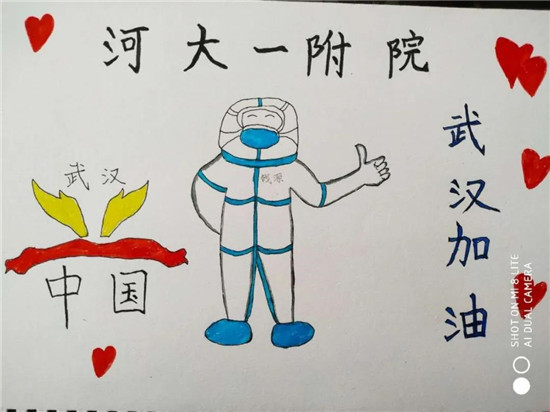 河大一附院
武汉
中国
武汉加油
SHOT ON MI 8 LITE
AI DUAL CAMERA